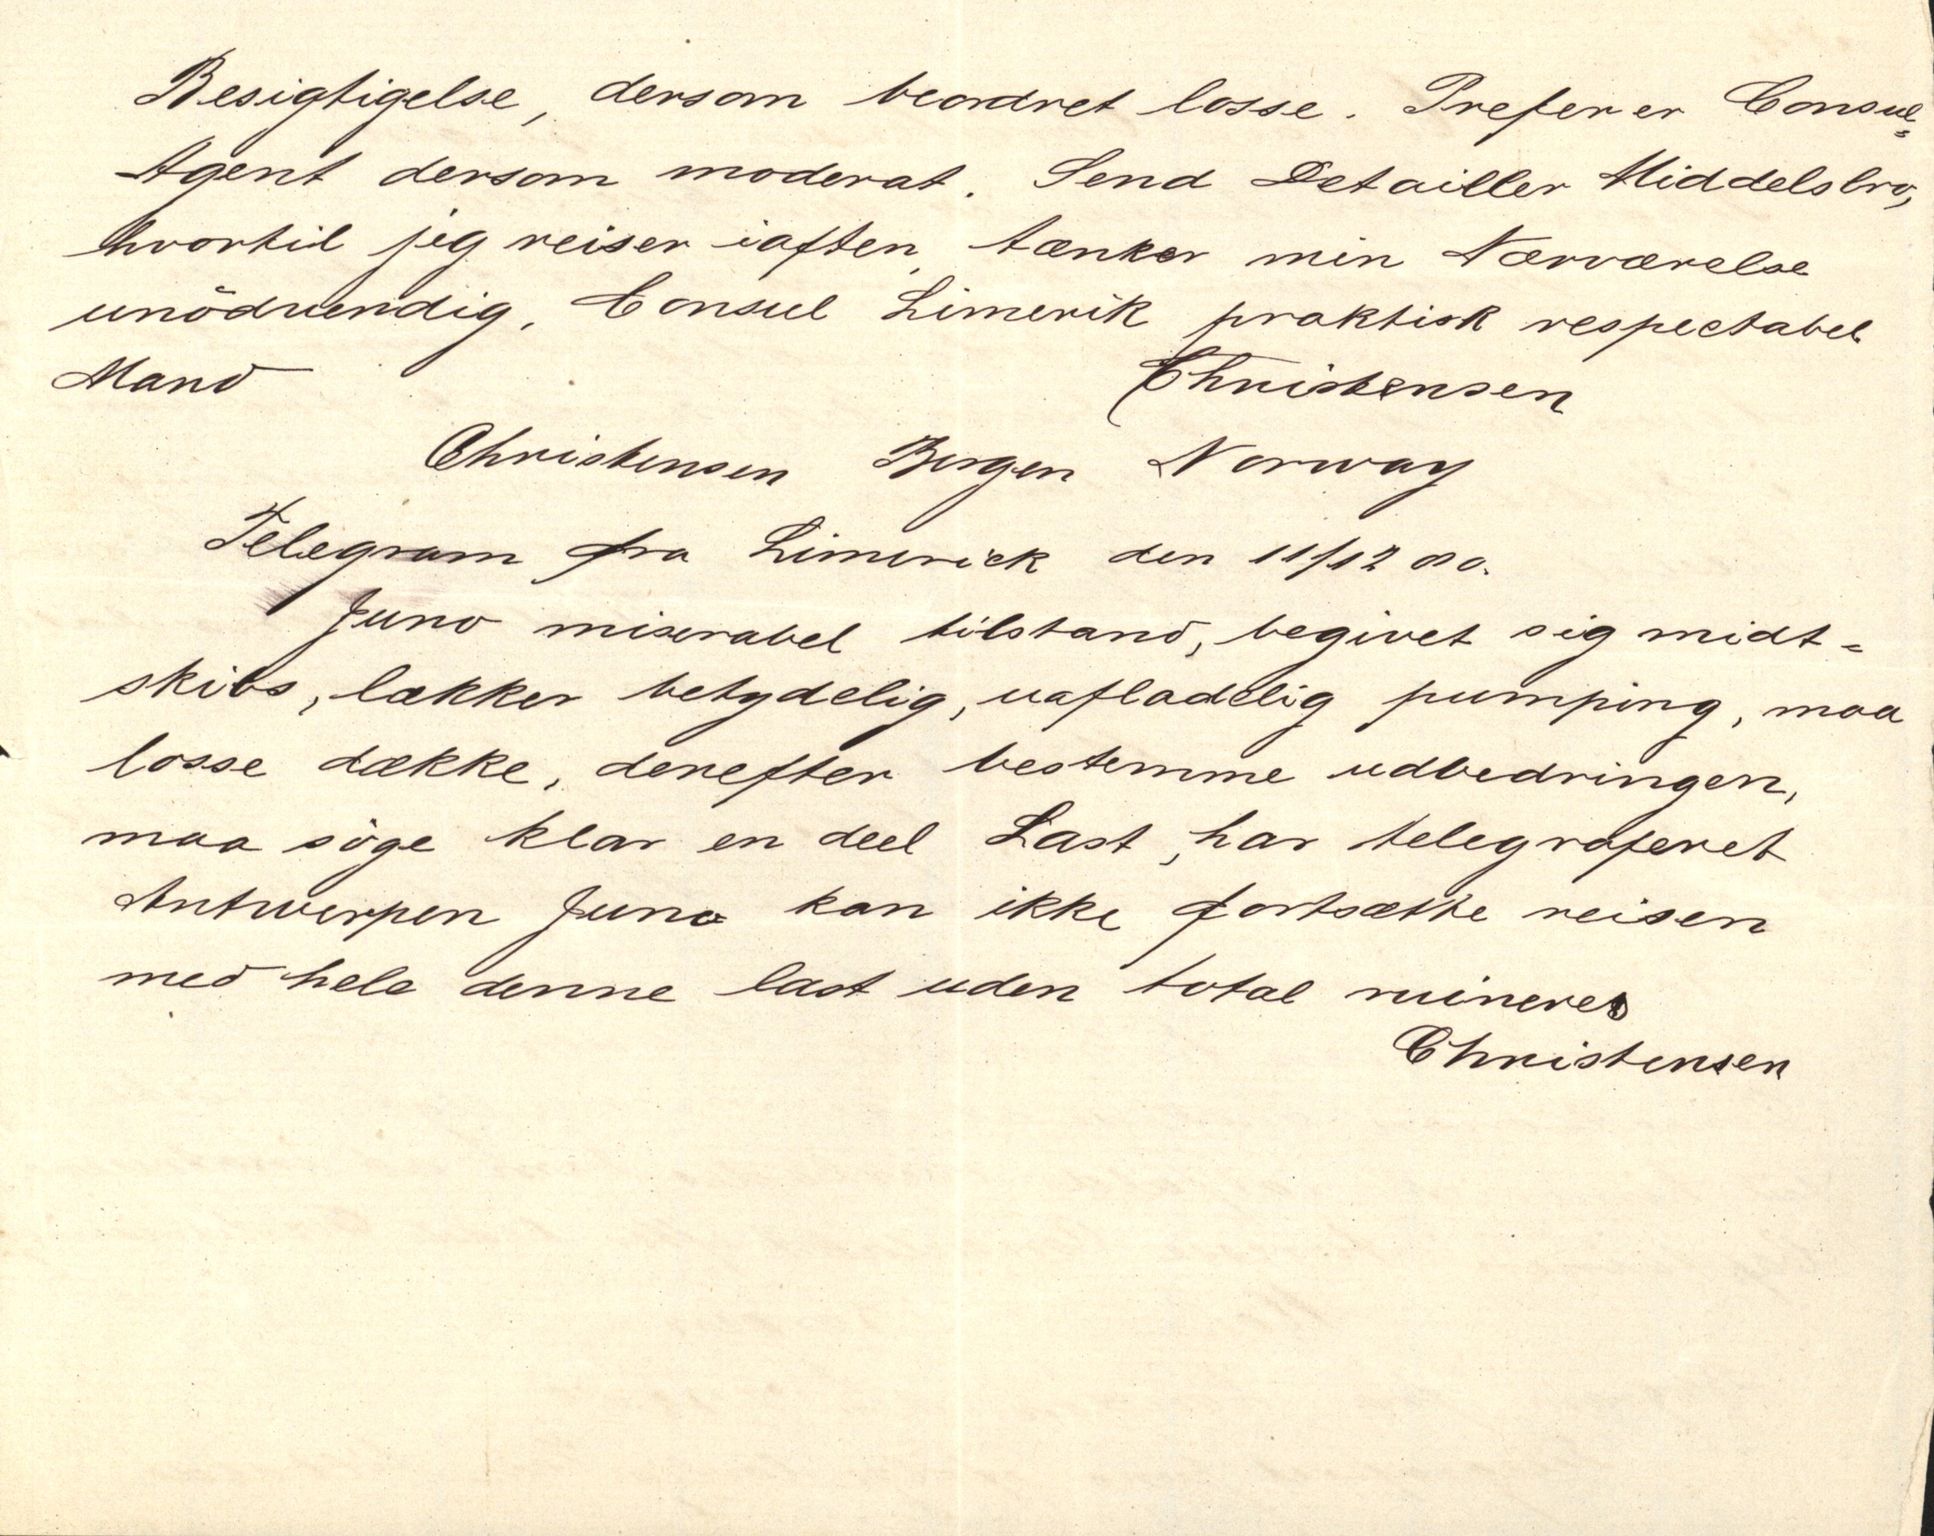 Besigtigelse, dersom beordret losse. Preferer Consul-
Agent dersom moderat. Send Detailler Middelsbro,
hvortil jeg reiser iaften, tænker min Nærværelse
unödvendig, Consul Limerik praktisk respectabel
Mand Christensen
Christensen Bergen Norway
Telegram fra Limerick den 11/12 80.
Juno miserabel tilstand, begivet sig midt-
skibs, lækker betydelig, uafladelig pumping, maa
losse dække, derefter bestemme udbedringen,
maa söge klar en deel Last, har telegraferet
Antwerpen Juno kan ikke fortsætte reisen
med hele denne last uden total ruineres
Christensen